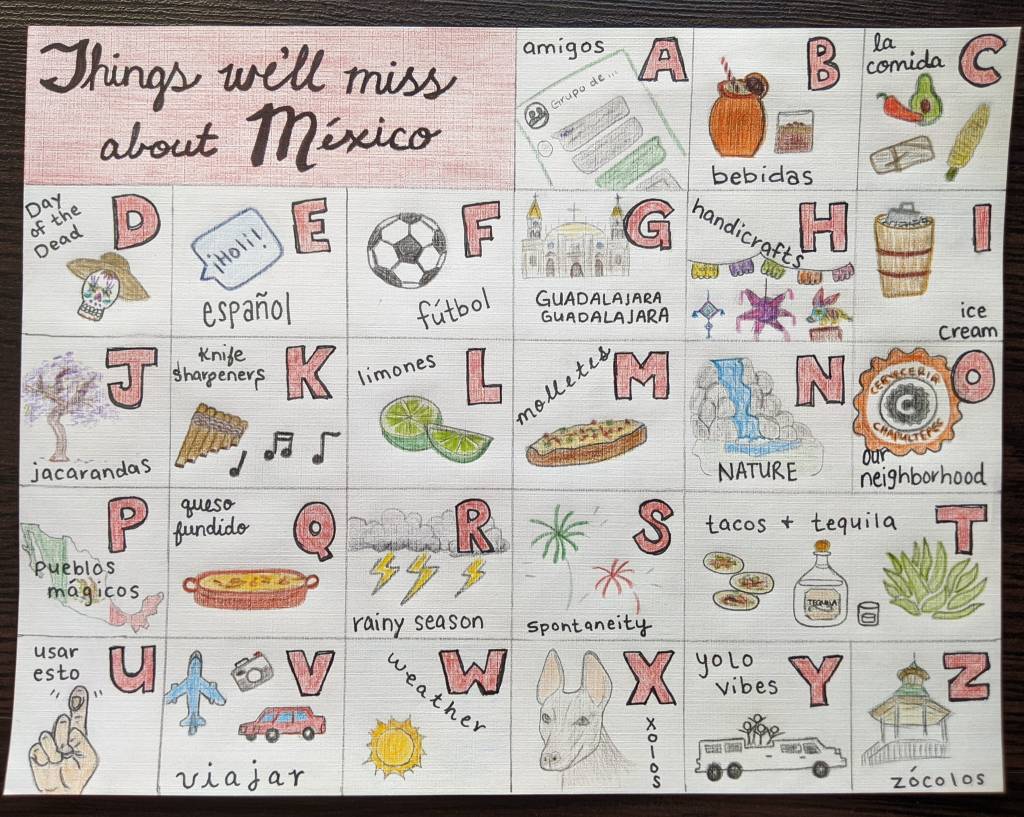 Things we'll miss
about México
amigos
A
Grupo de...
B
bebidas
la
comida
C
Day
of the
Dead
D
E
¡Holi!
español
F
fútbol
G
GUADALAJARA
GUADALAJARA
handicrafts
H
I
ice
cream
J
jacarandas
Knife
sharpeners
K
limones
L
molletes
M
N
NATURE
O
CERVECERIA
C
CHAPULTEPEC
our
neighborhood
P
pueblos
mágicos
queso
fundido
Q
R
rainy season
S
spontaneity
tacos + tequila
T
TEQUILA
usar
esto
U
V
viajar
weather
W
X
xolos
yolo
vibes
Y
Z
zócolos